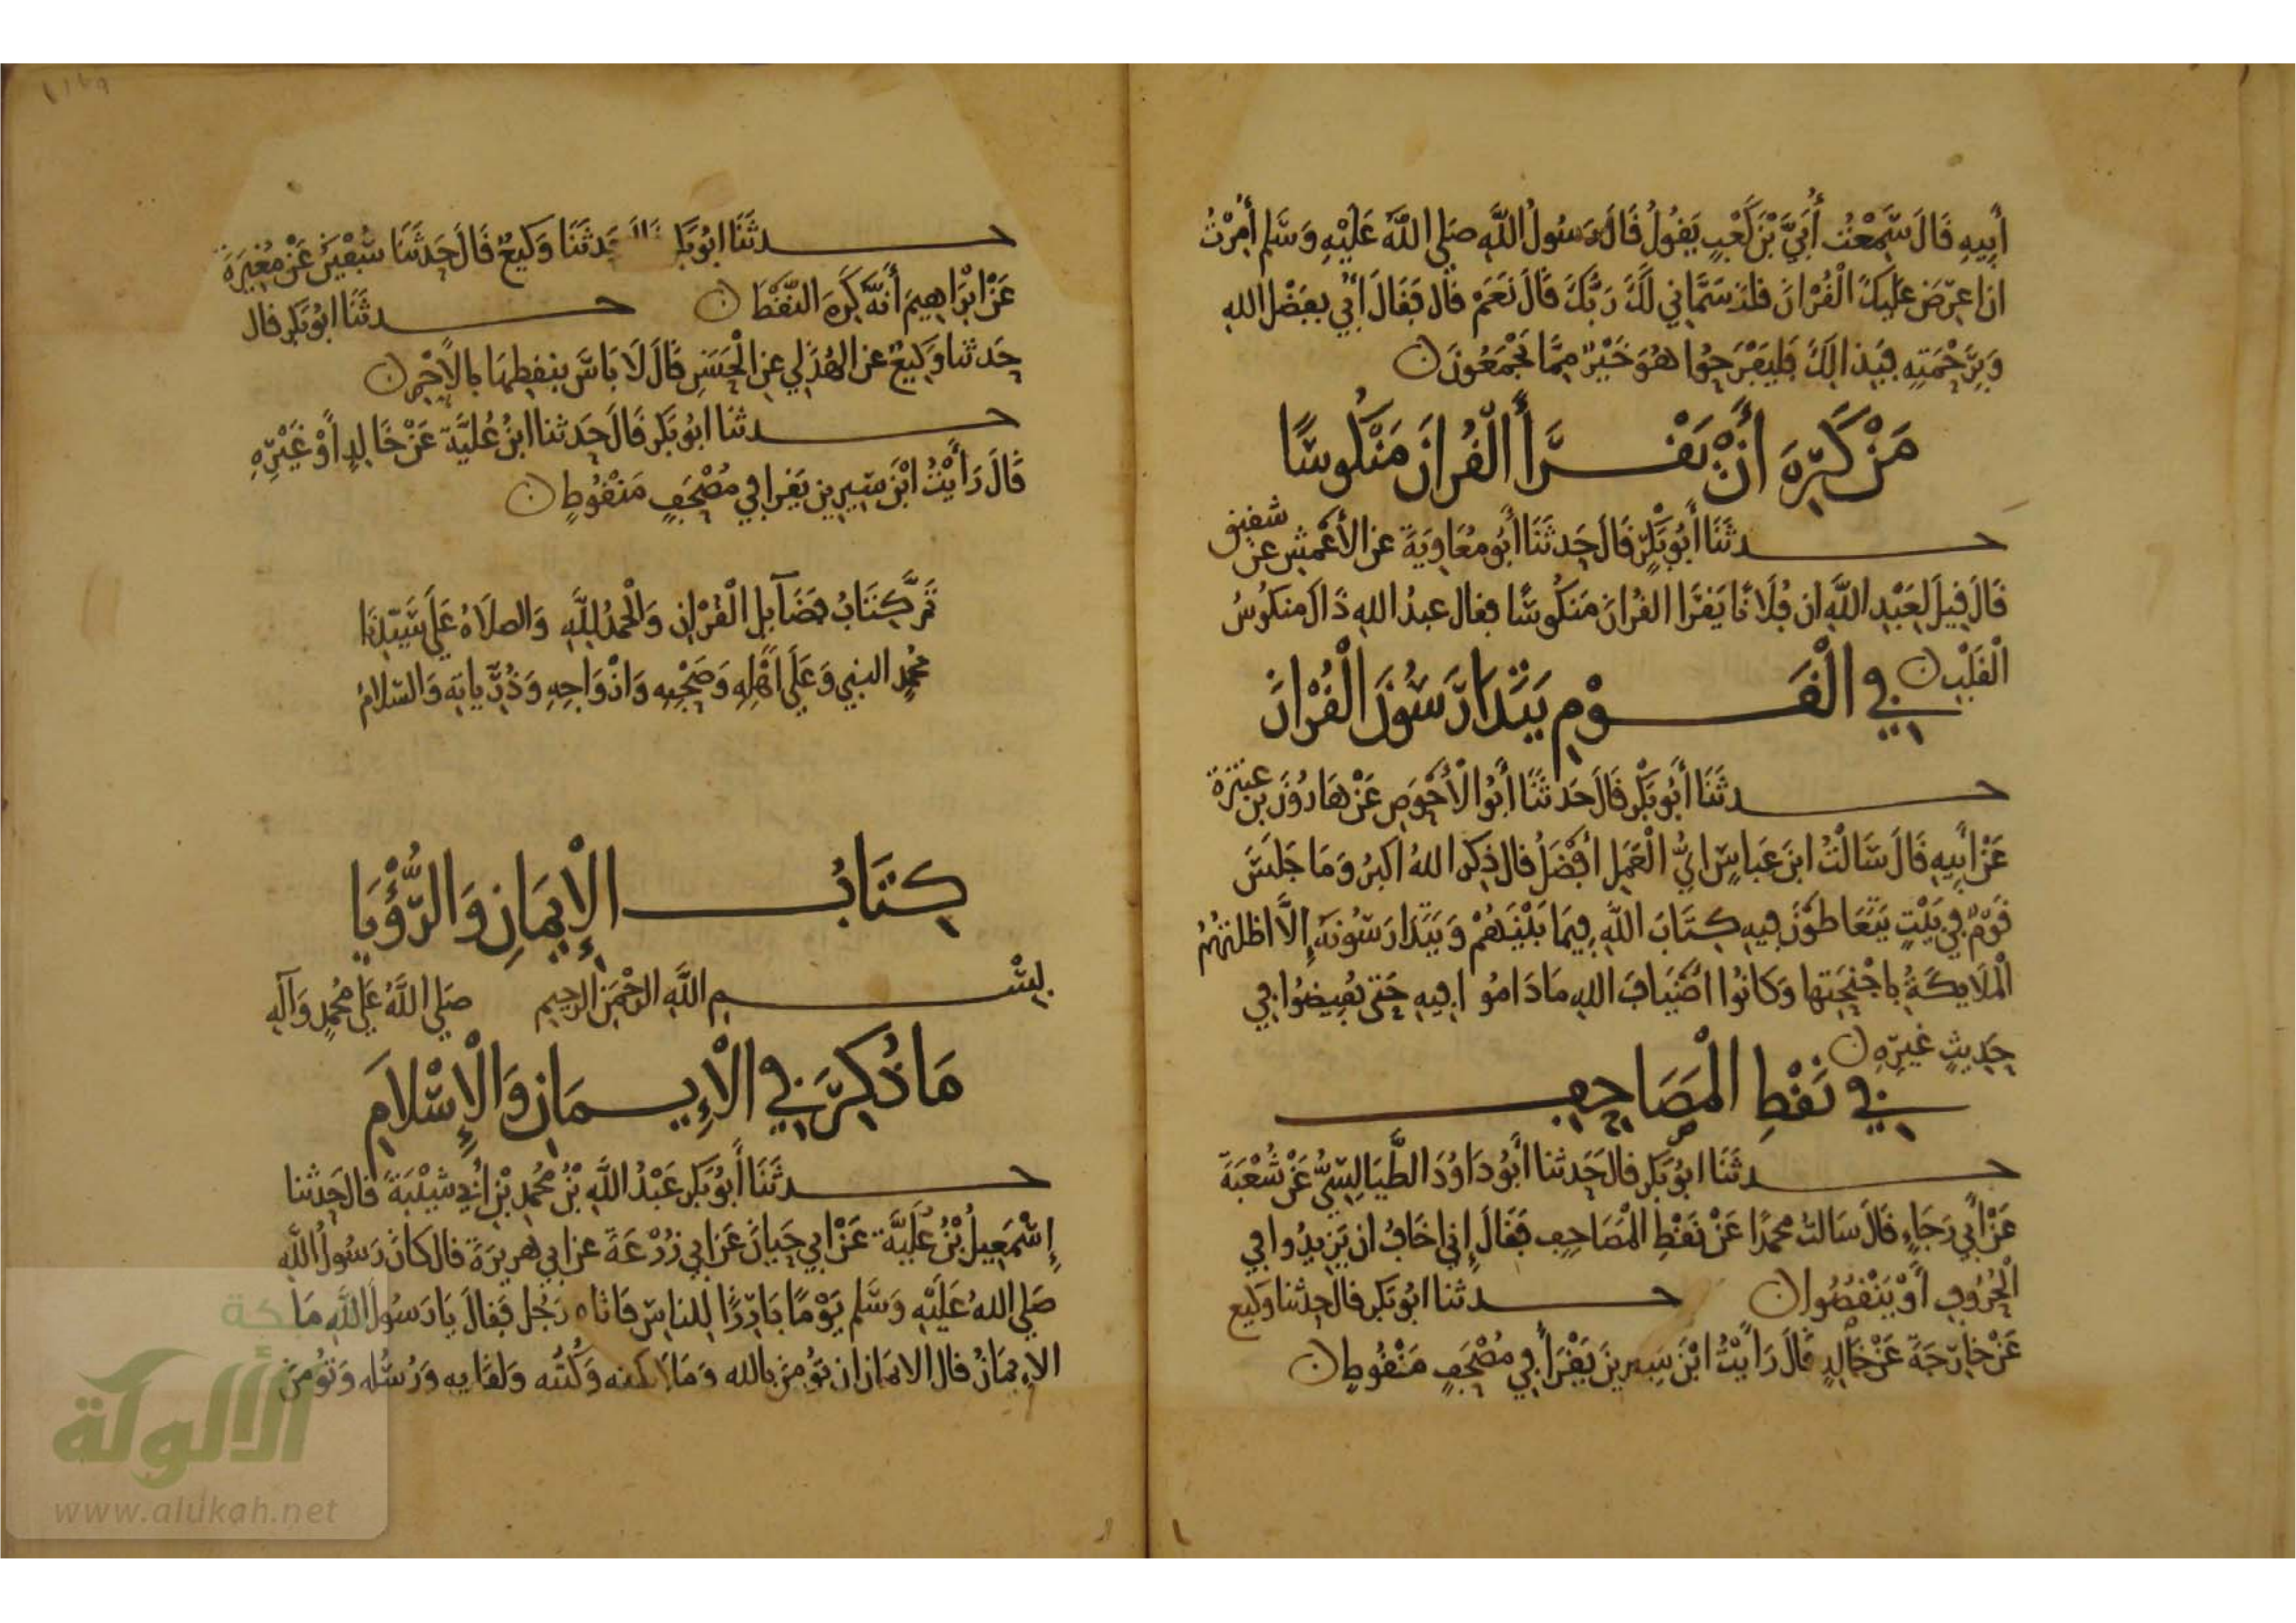 أَبِيهِ قَالَ سَمِعْتُ أُبَيَّ بْنَ كَعْبٍ يَقُولُ قَالَ رَسُولُ اللَّهِ صَلى اللَّهُ عَلَيْهِ وَسَّلم أُمِرْتُ
ان اعرِضَ عَلَيكَ الْقُرْانَ قلت سَمَّاني لَكَ رَبُّكَ قَالَ نَعَمْ قال فَقَالَ أبَيّ بفَضْل الله
وَبِرَحْمَتِهِ فَبِذالِكَ فَليَفْرَحُوا هُوَ خَيْرٌ مِمَّا تَجْمَعُونَ
مَنْ كَرِهَ أَنْ يَقْرَأَ الْقُرانَ مَنْكُوسًا
حدثَنَا أَبُو بَكْرٍ قَالَ حَدثَنَا أَبُو مُعَاوِيَةَ عن الأَعْمَشِ عن شقيق
قَالَ قِيلَ لِعَبْدِ اللَّهِ ان فُلَانًا يَقرَا القُرانَ مَنكُوسًا فقال عبدُ اللهِ ذَاكَ منكوُسُ
الْقَلْبِ
في الْقَوْمِ يَتَدَارَسُونَ الْقُرْانَ
حدثَنَا أَبُو بَكْرٍ قَالَ حَدثَنَا أَبُو الْأَحْوَصِ عَنْ هَارُونَ بن عَنتَرَةَ
عَنْ أَبِيهِ قَالَ سَالْتُ ابنَ عَباسٍ ايُّ الْعَمَلِ افْضَلُ قال ذِكرُ اللهُ اكبرُ وَمَا جَلَسَ
قَوْمٌ فِي بَيْتٍ يَتَعَاطَوْنَ فِيهِ كِتَابَ اللَّهِ فِيمَا بَيْنَهُمْ وَيَتَدَارَسُونَهُ إِلَّا اظلتهُمُ
الْمَلَايِكَةُ بِاجْنِحَتِهَا وَكَانُوا اضْيَافَ اللهِ مَا دَامُوا فِيهِ حَتى يُفِيضُوا فِي
حَدِيثٍ غيرِهِ
في نَقْطِ الْمَصَاحِفِ
حدثَنَا ابُو بَكر قال حَدثنا أَبُو دَاوُدَ الطَّيَالِسِيُّ عَنْ شُعْبَةَ
عَنْ أَبِي رَجَاءٍ قَالَ سَالتُ محمدًا عَنْ نَقْطِ الْمَصَاحِفِ فَقَالَ إِني اخَافُ ان يَزِيدُوا فِي
الْحُرُوفِ أَوْ يَنْقُصُوا حدثنا ابُو بَكر قال حدثنا وَكيع
عَنْ خَارِجَةَ عَنْ خَالِدٍ قَالَ رَايْتُ ابْنَ سِيرِينَ يَقْرَأ في مُصْحَفٍ مَنْقُوطٍ
حدثَنَا ابُو بَكر حَدثَنَا وَكِيعٌ قَالَ حَدثَنَا سُفْيَنُ عَنْ مُغِيرَةَ
عَنْ ابْرَاهِيمَ أَنَّهُ كَرِهَ النَّقْطَ حدثَنَا ابُو بَكر قال
حَدثنا وَكِيعٌ عن الهُذَلي عن الْحَسَنِ قَالَ لَا بَاسَ بِنَقطِهَا بالأحْمرِ
حدثنا ابُو بَكر قَالَ حَدثنا ابنُ عُلَيَّةَ عَنْ خَالِدٍ أَوْ غَيْرِهِ
قَالَ رَأَيْتُ ابْنَ سِيرِين يَقرا في مُصْحَفٍ مَنْقُوطٍ
تَمَّ كِتَابُ فَضَآيِلِ الْقُرْانِ وَالْحَمْدُ لِلَّهِ وَالصلَاةُ عَلَى سَيِّدِنَا
مُحمدٍ النبي وَعَلَى اهْلِهِ وَصَحْبِهِ وَازْوَاجِهِ وَذُرِّيايَهِ وَالسَّلَامُ
كِتَابُ الْإِيمَانِ وَالرُّؤْيَا
بِسْمِ اللَّهِ الرَّحْمَنِ الرحِيمِ صَلى اللَّهُ عَلى محُمدٍ وَآلِهِ
مَا ذُكِرَ فِي الْإِيمَانِ وَالْإِسْلَامِ
حدثَنَا أَبُو بَكر عَبْدُ اللَّهِ بْنُ مُحمدِ بْنِ أَبِي شَيْبَةَ قال حَدثنا
إِسْمَعِيلُ بْنُ عُلَيَّةَ عَنْ ابي حَيانَ عَنْ ابي زُرْعَةَ عن ابي هريرَةَ قال كَانَ رَسُولُ اللَّهِ
صَلى اللهُ عَلَيْهِ وَسَّلم يَوْمًا بَارِزًا لِلناسِ فَاتاه رَجُل فَقالَ يَا رَسُولَ اللَّهِ مَا
الإيمَانُ قال الايمَان ان تُومِنَ بالله وَمَلاَيكته وَكُتبه وَلقايه وَرُسُله وَتُومِنَ
الألوكة
www.alukah.net